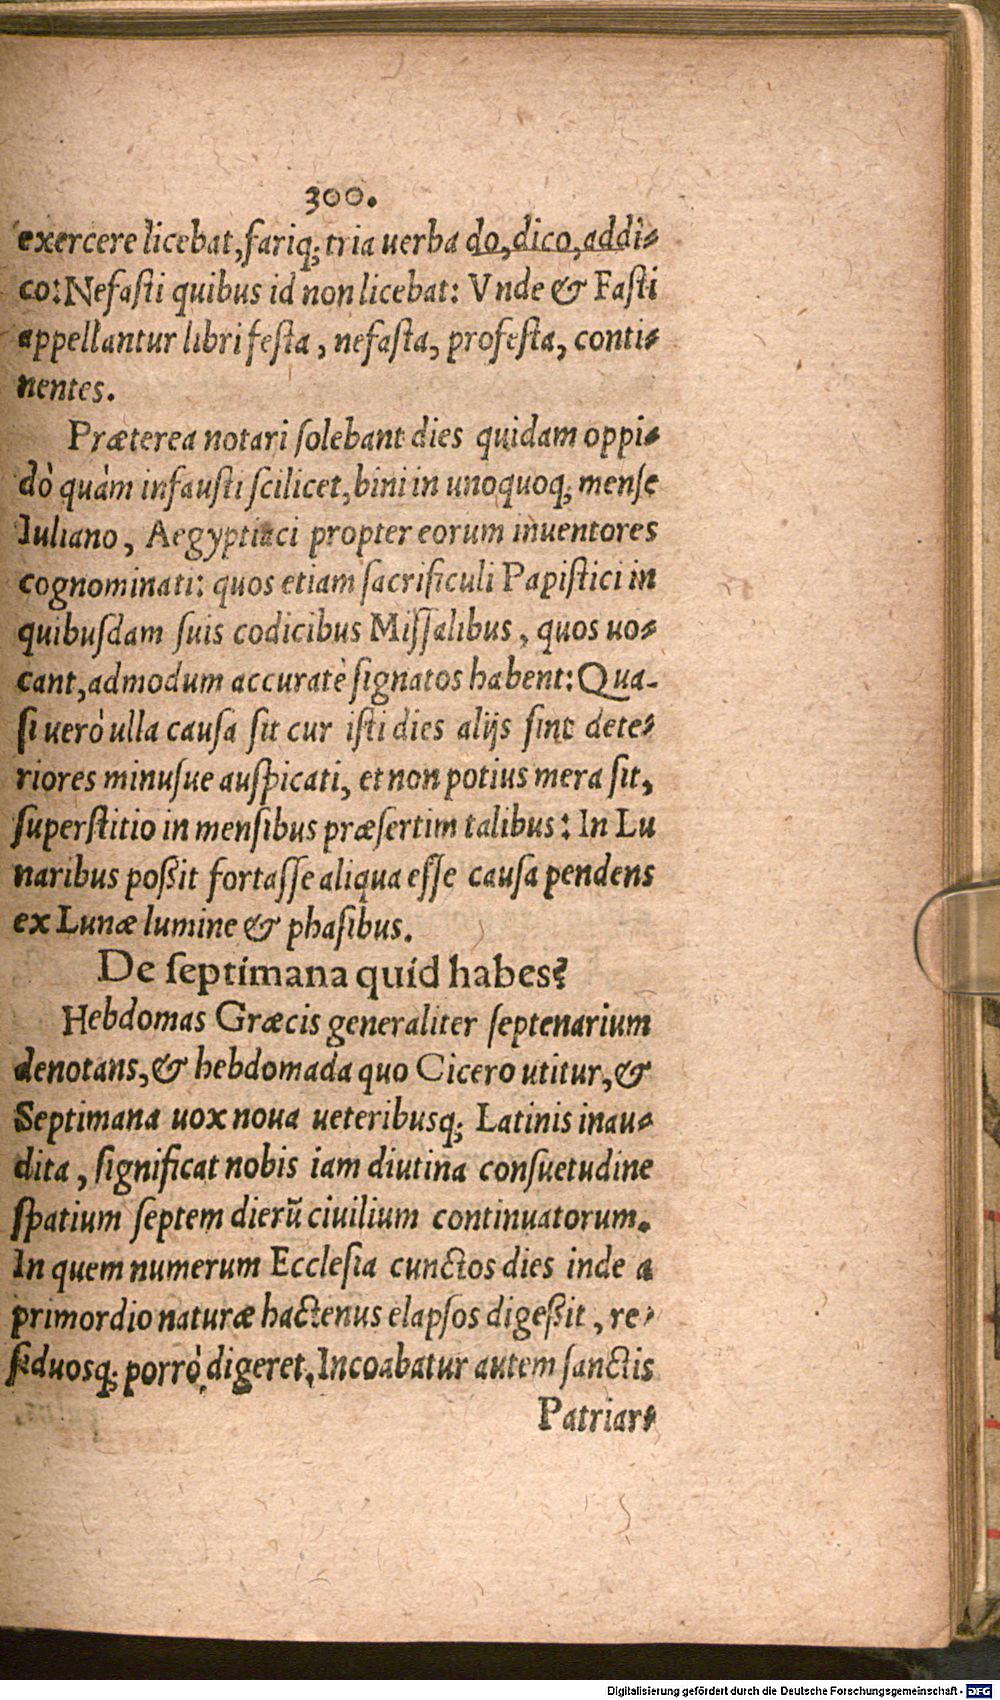 300.
exercere licebat, fariq; tria uerba do, dico, addi-
co: Nefasti quibus id non licebat: Vnde & Fasti
appellantur libri festa, nefasta, profesta, conti-
nentes.
Præterea notari solebant dies quidam oppi-
dò quàm infausti scilicet, bini in unoquoq; mense
Iuliano, Aegyptiaci propter eorum inuentores
cognominati: quos etiam sacrificuli Papistici in
quibusdam suis codicibus Missalibus, quos uo-
cant, admodum accuratè signatos habent: Qua-
si uerò ulla causa sit cur isti dies alijs sint dete-
riores minusue auspicati, et non potius mera sit,
superstitio in mensibus præsertim talibus: In Lu
naribus poßit fortasse aliqua esse causa pendens
ex Lunæ lumine & phasibus.
De septimana quid habes?
Hebdomas Græcis generaliter septenarium
denotans, & hebdomada quo Cicero utitur, &
Septimana uox noua ueteribusq; Latinis inau-
dita, significat nobis iam diutina consuetudine
spatium septem dierũ ciuilium continuatorum.
In quem numerum Ecclesia cunctos dies inde a
primordio naturæ hactenus elapsos digeßit, re-
siduosq; porrò digeret, Incoabatur autem sanctis
Patriar-
Digitalisierung gefördert durch die Deutsche Forschungsgemeinschaft - DFG